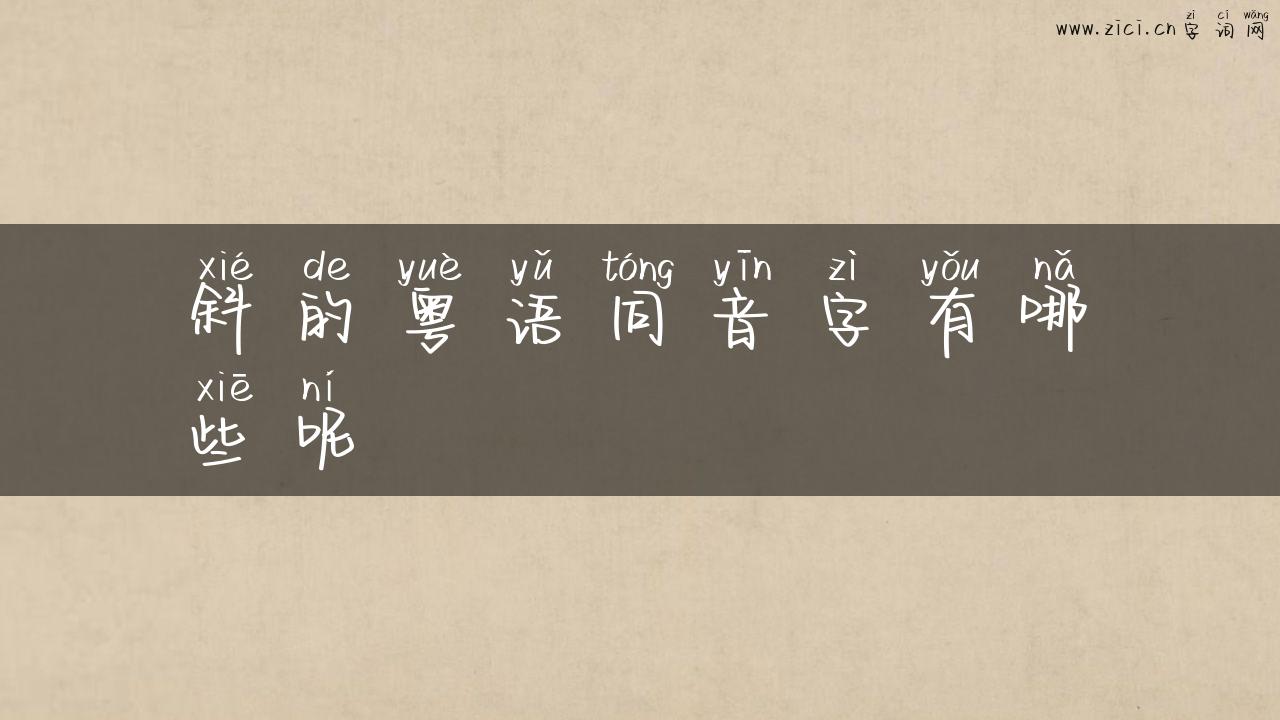 zì cí wǎng
www.zici.cn 字词网
xié de yuè yǔ tóng yīn zì yǒu nǎ
斜的粤语同音字有哪
xiē ní
些呢